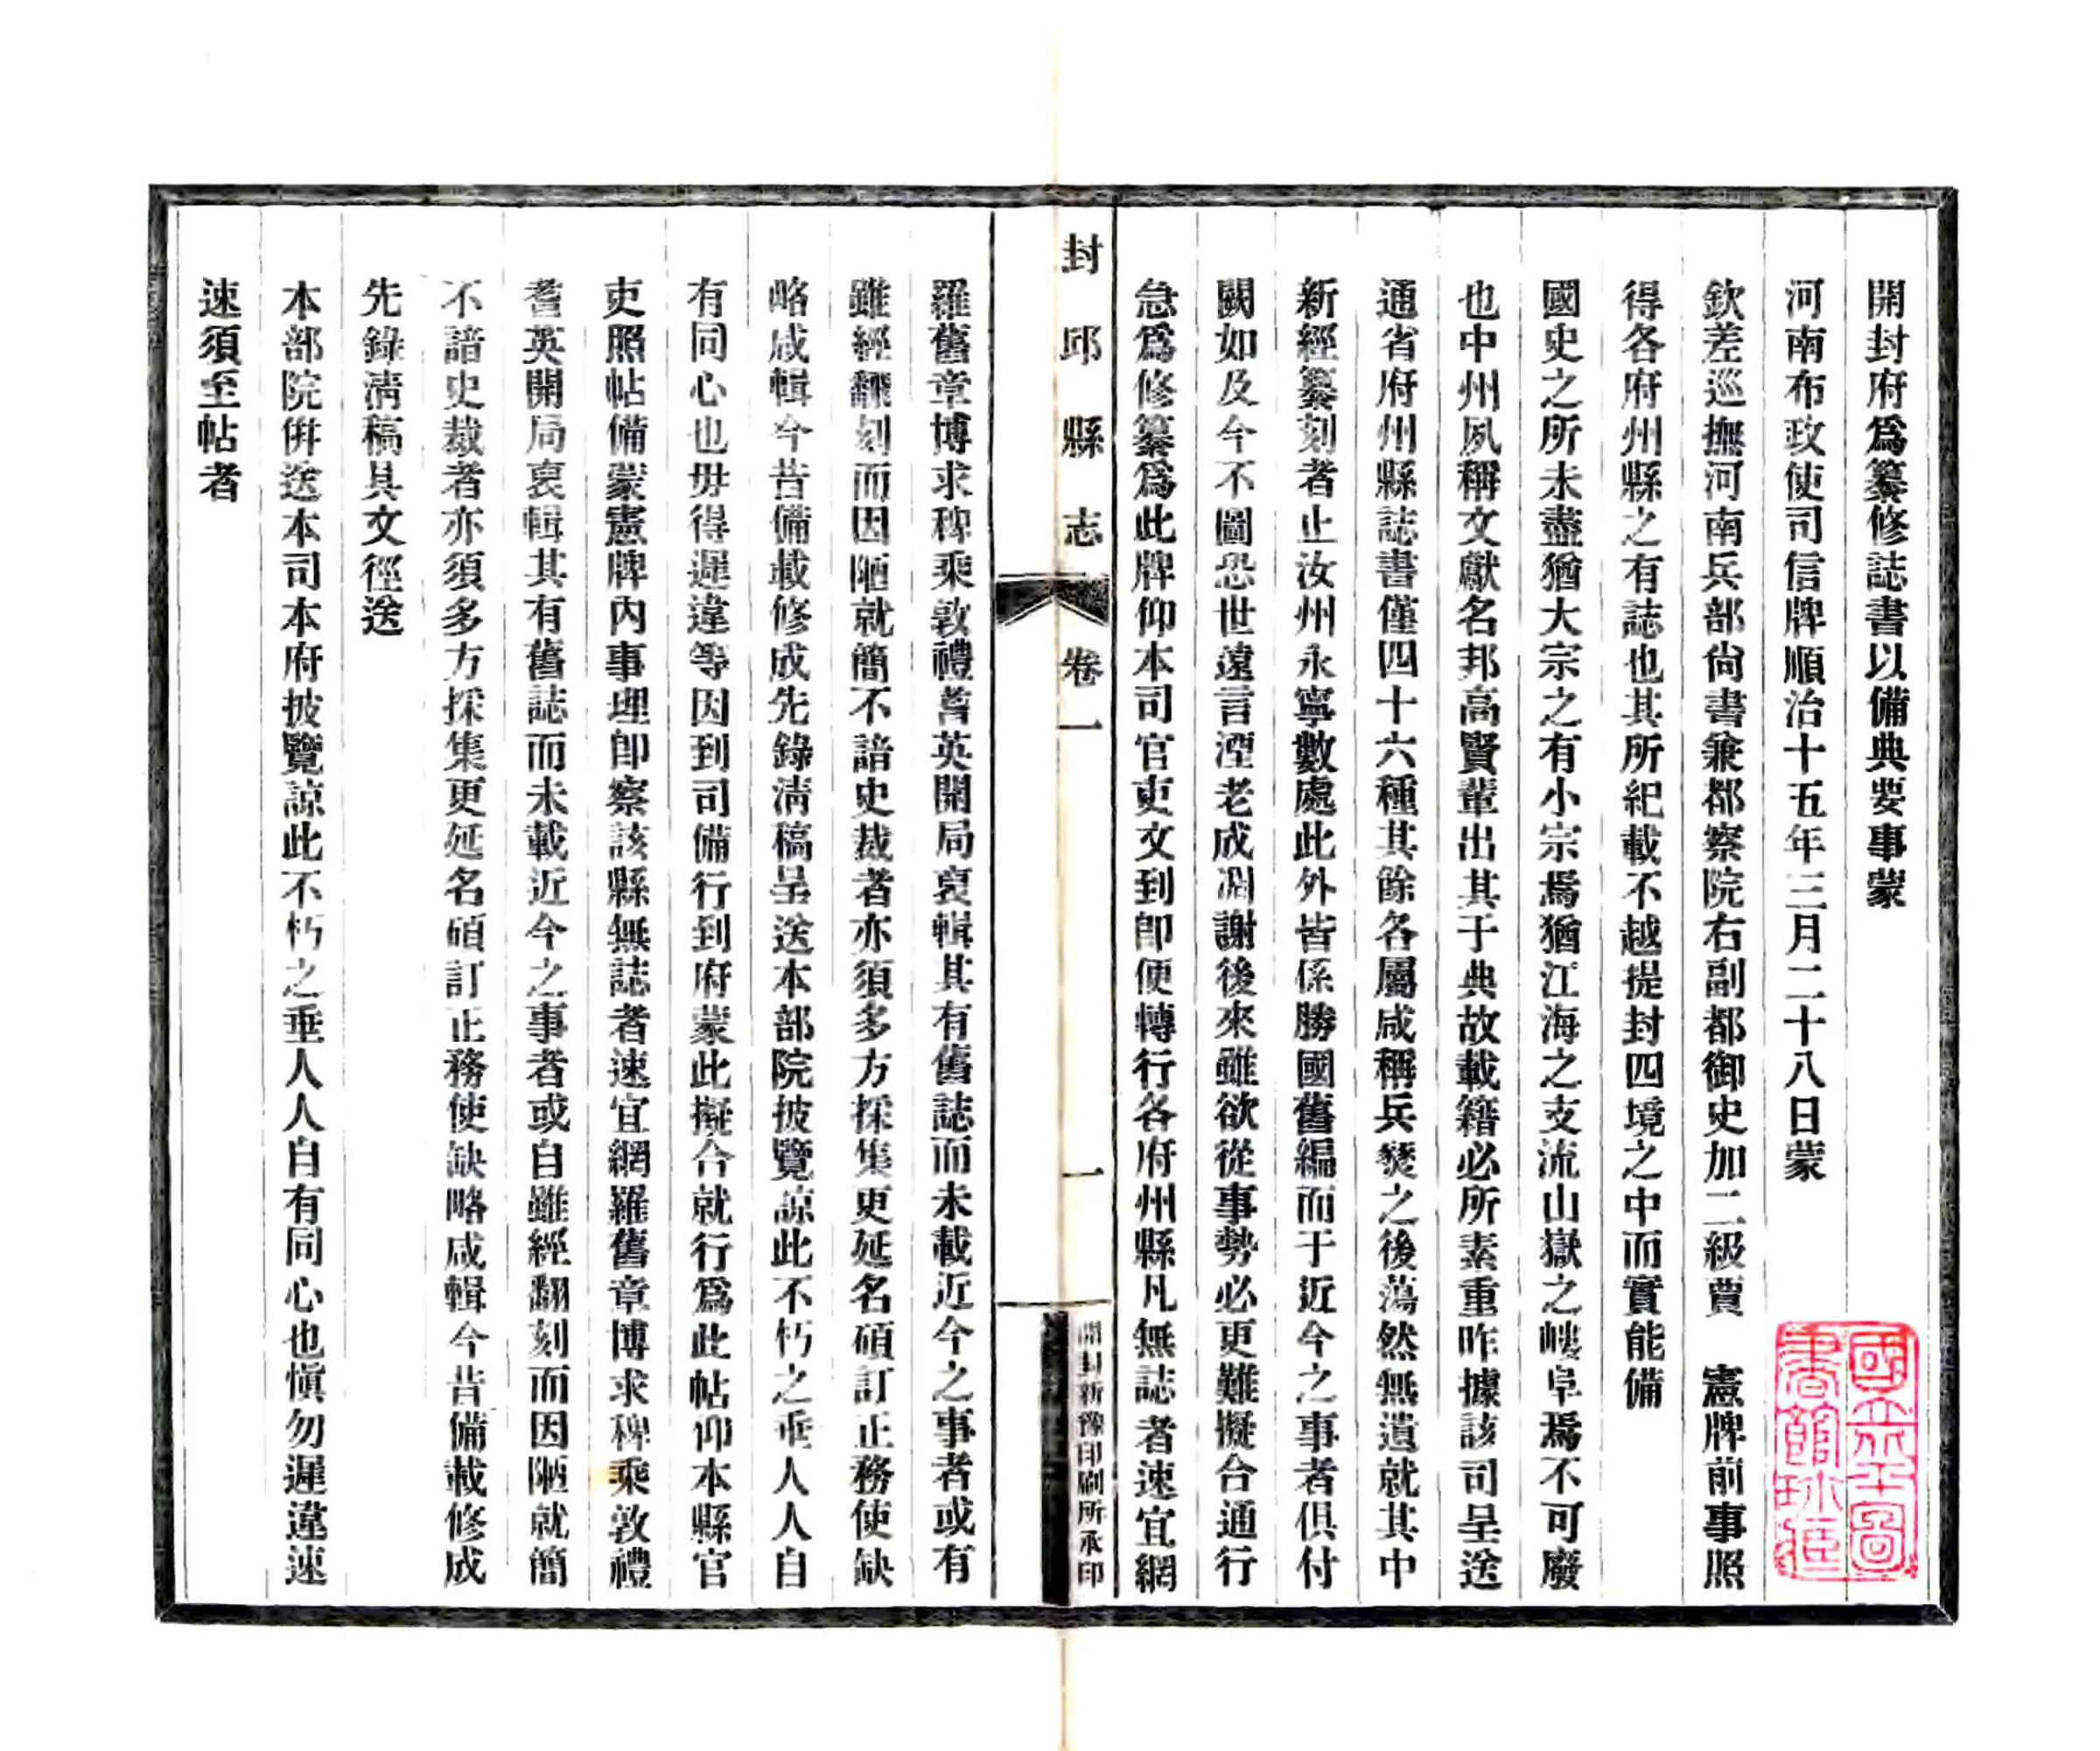 開封府爲纂修誌書以備典要事蒙
河南布政使司信牌順治十五年三月二十八日蒙
欽差巡撫河南兵部尙書兼都察院右副都御史加二級賈　憲牌前事照
得各府州縣之有誌也其所紀載不越提封四境之中而實能備
國史之所未盡猶大宗之有小宗焉猶江海之支流山嶽之嶁阜焉不可廢
也中州夙稱文獻名邦高賢輩出其于典故載籍必所素重昨據該司呈送
通省府州縣誌書僅四十六種其餘各屬咸稱兵燹之後蕩然無遺就其中
新經纂刻者止汝州永寧數處此外皆係勝國舊編而于近今之事者俱付
闕如及今不圖恐世遠言湮老成凋謝後來雖欲從事勢必更難擬合通行
急爲修纂爲此牌仰本司官吏文到卽便轉行各府州縣凡無誌者速宜網
封邱縣志
卷一
一
開封新豫印刷所承印
羅舊章博求稗乘敦禮耆英開局裒輯其有舊誌而未載近今之事者或有
雖經翻刻而因陋就簡不諳史裁者亦須多方採集更延名碩訂正務使缺
略咸輯今昔備載修成先錄淸稿呈送本部院披覽諒此不朽之垂人人自
有同心也毋得遲違等因到司備行到府蒙此擬合就行爲此帖仰本縣官
吏照帖備蒙憲牌內事理卽察該縣無誌者速宜網羅舊章博求稗乘敦禮
耆英開局裒輯其有舊誌而未載近今之事者或自雖經翻刻而因陋就簡
不諳史裁者亦須多方採集更延名碩訂正務使缺略咸輯今昔備載修成
先錄淸稿具文徑送
本部院倂送本司本府披覽諒此不朽之垂人人自有同心也愼勿遲違速
速須至帖者
國立北平圖
書館珍藏